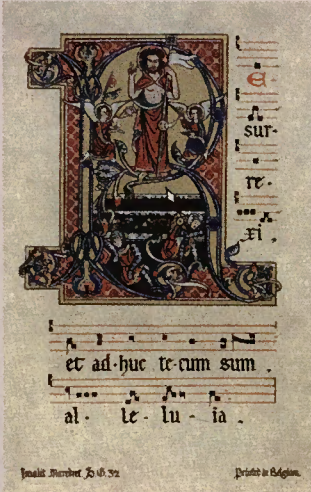 R
e
sur-
re-
xi.
et ad-huc te-cum sum.
al-le-lu-ia.
S.G. 32
Printed in Belgium